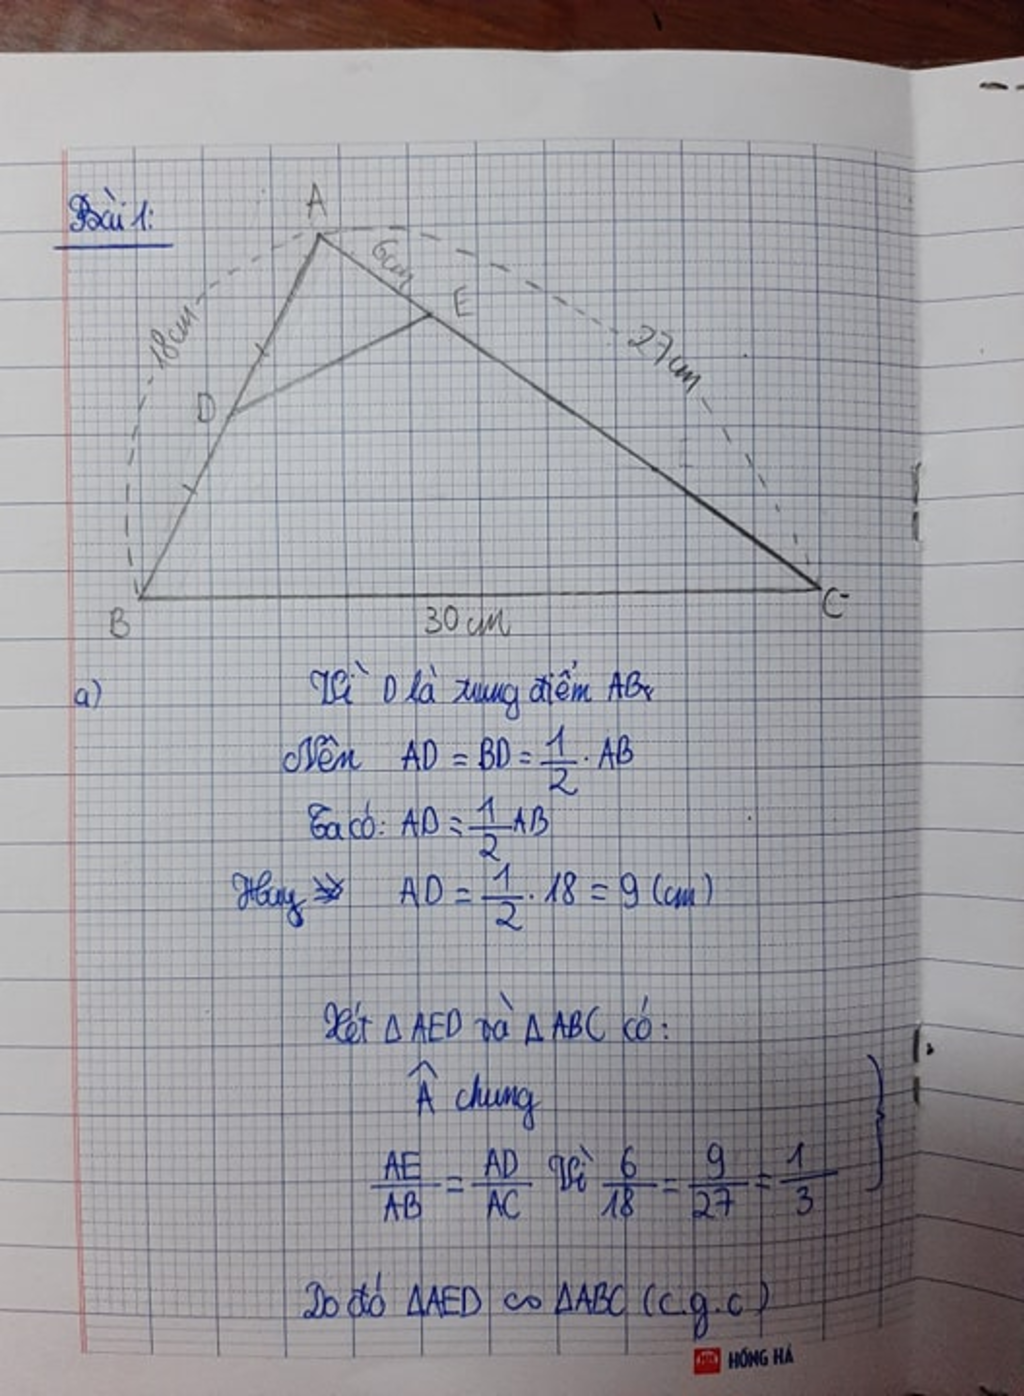 Bài 1:
A
6cm
E
18cm
27cm
D
B
30 cm
C
a) Vì D là trung điểm AB
Nên AD = BD = 1/2 . AB
Ta có: AD = 1/2 AB
Hay AD = 1/2 . 18 = 9 (cm)
Xét Δ AED và Δ ABC có:
Â chung
AE/AB = AD/AC Vì 6/18 = 9/27 = 1/3
Do đó ΔAED ∽ ΔABC (c.g.c)
HỒNG HÀ